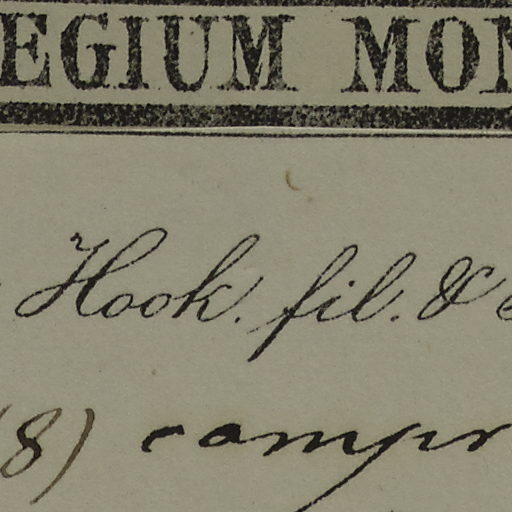 EGIUM MON
Hook. fil. &
8) compr